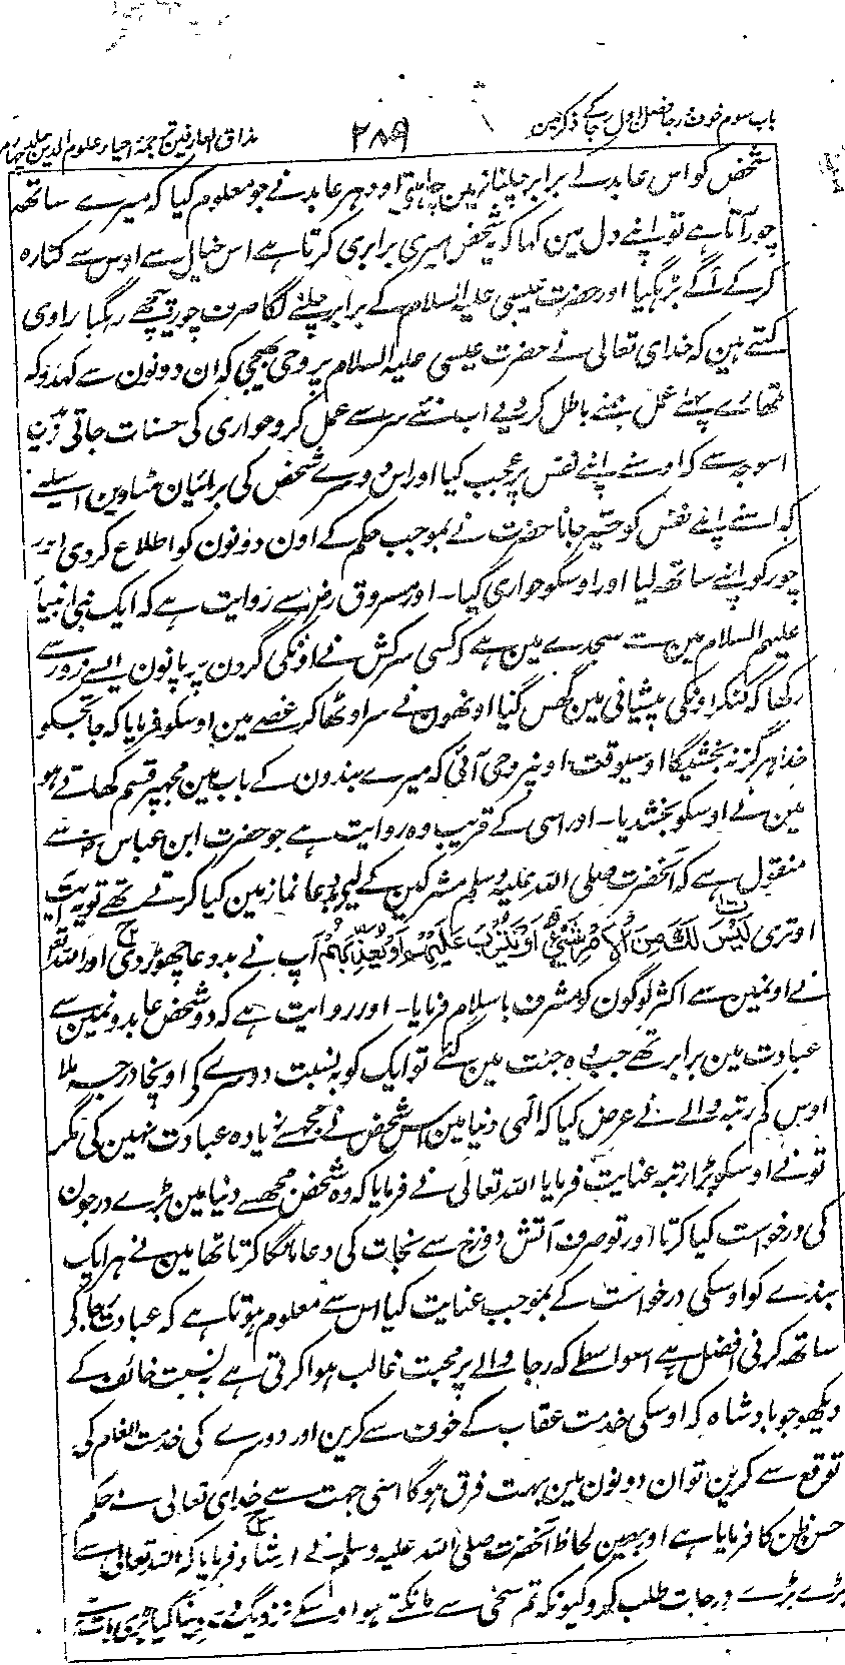 باب سوم خوف رجا فصل اول رجا کے ذکر مین
۲۸۹
مذاق العارفین ترجمۂ احیاء علوم الدین جلد چہارم
شخص کو اس عابد کے برابر چلنا نہین چاہئے اودہر عابد نے جو معلوم کیا کہ میرے ساتھ
چور آتا ہے تو اپنے دل مین کہا کہ یہ شخص میری برابری کرتا ہے اس خیال سے اوس سے کنارہ
کرکے آگے بڑہگیا اور حضرت عیسی علیہ السلام کے برابر چلنے لگا صرف چور پیچھے رہگیا راوی
کہتے ہین کہ خدای تعالی نے حضرت عیسی علیہ السلام پر وحی بھیجی کہ ان دونون سے کہدو کہ
تمھارے پہلے عمل مینے باطل کر دیے اب نئے سرے سے عمل کرو حواری کی حسنات جاتی رہین
اسوجہ سے کہ اوسنے اپنے نفس پر عجب کیا اور اس دوسرے شخص کی برائیان مٹادین اسلیے
کہ اسنے اپنے نفس کو حقیر جانا حضرت نے بموجب حکم کے اون دونون کو اطلاع کردی اور
چور کو اپنے ساتھ لیا اور اوسکو حواری کیا۔ اور مسروق رض سے روایت ہے کہ ایک نبی انبیا
علیہم السلام مین سے سجدے مین تھے کہ کسی سرکش نے اونکی گردن پر پانون ایسے زور سے
رکھا کہ کنکر اونکی پیشانی مین گھس گیا اونھون نے سر اوٹھا کر غصے مین اوسکو فرمایا کہ جا تجکو
خدا ہرگز نہ بخشیگا اوسیوقت اونپر وحی آئی کہ میرے بندون کے باب مین مجھپر قسم کھاتے ہو
مین نے اوسکو بخشدیا۔ اور اسی کے قریب وہ روایت ہے جو حضرت ابن عباس رض سے
منقول ہے کہ آنحضرت صلی اللہ علیہ وسلم مشرکین کے لیے بددعا نماز مین کیا کرتے تھے تو یہ آیت
اوتری لَیْسَ لَکَ مِنَ الْاَمْرِ شَیْءٌ اَوْ یَتُوْبَ عَلَیْہِمْ اَوْ یُعَذِّبَہُمْ آپ نے بد دعا چھوڑ دی اور اللہ تعالی
نے اونمین سے اکثر لوگون کو مشرف باسلام فرمایا۔ اور روایت ہے کہ دو شخص عابدونمین سے
عبادت مین برابر تھے جب وہ جنت مین گئے تو ایک کو بہ نسبت دوسرے کے اونچا درجہ ملا
اوس کم رتبہ والے نے عرض کیا کہ الہی دنیا مین اس شخص نے مجھسے زیادہ عبادت نہین کی مگر
تونے اوسکو بڑا رتبہ عنایت فرمایا اللہ تعالی نے فرمایا کہ وہ شخص مجھسے دنیا مین بڑے درجون
کی درخواست کیا کرتا اور تو صرف آتش دوزخ سے نجات کی دعا مانگا کرتا تھا مین نے ہر ایک
بندے کو اوسکی درخواست کے بموجب عنایت کیا اس سے معلوم ہوتا ہے کہ عبادت رجا کے
ساتھ کرنی افضل ہے اسواسطے کہ رجا والے پر محبت غالب ہوا کرتی ہے بہ نسبت خائف کے
دیکھو جو بادشاہ کہ اوسکی خدمت عقاب کے خوف سے کرین اور دوسرے کی خدمت انعام کی
توقع سے کرین تو ان دونون مین بہت فرق ہوگا اسی جہت سے خدای تعالی نے حکم
حسن ظن کا فرمایا ہے اور بہمین لحاظ آنحضرت صلی اللہ علیہ وسلم نے ارشاد فرمایا کہ اللہ تعالی سے
بڑے بڑے درجات طلب کرو کیونکہ تم سخی سے مانگتے ہو اوسکے نزدیک دینا کیا بڑی بات ہے